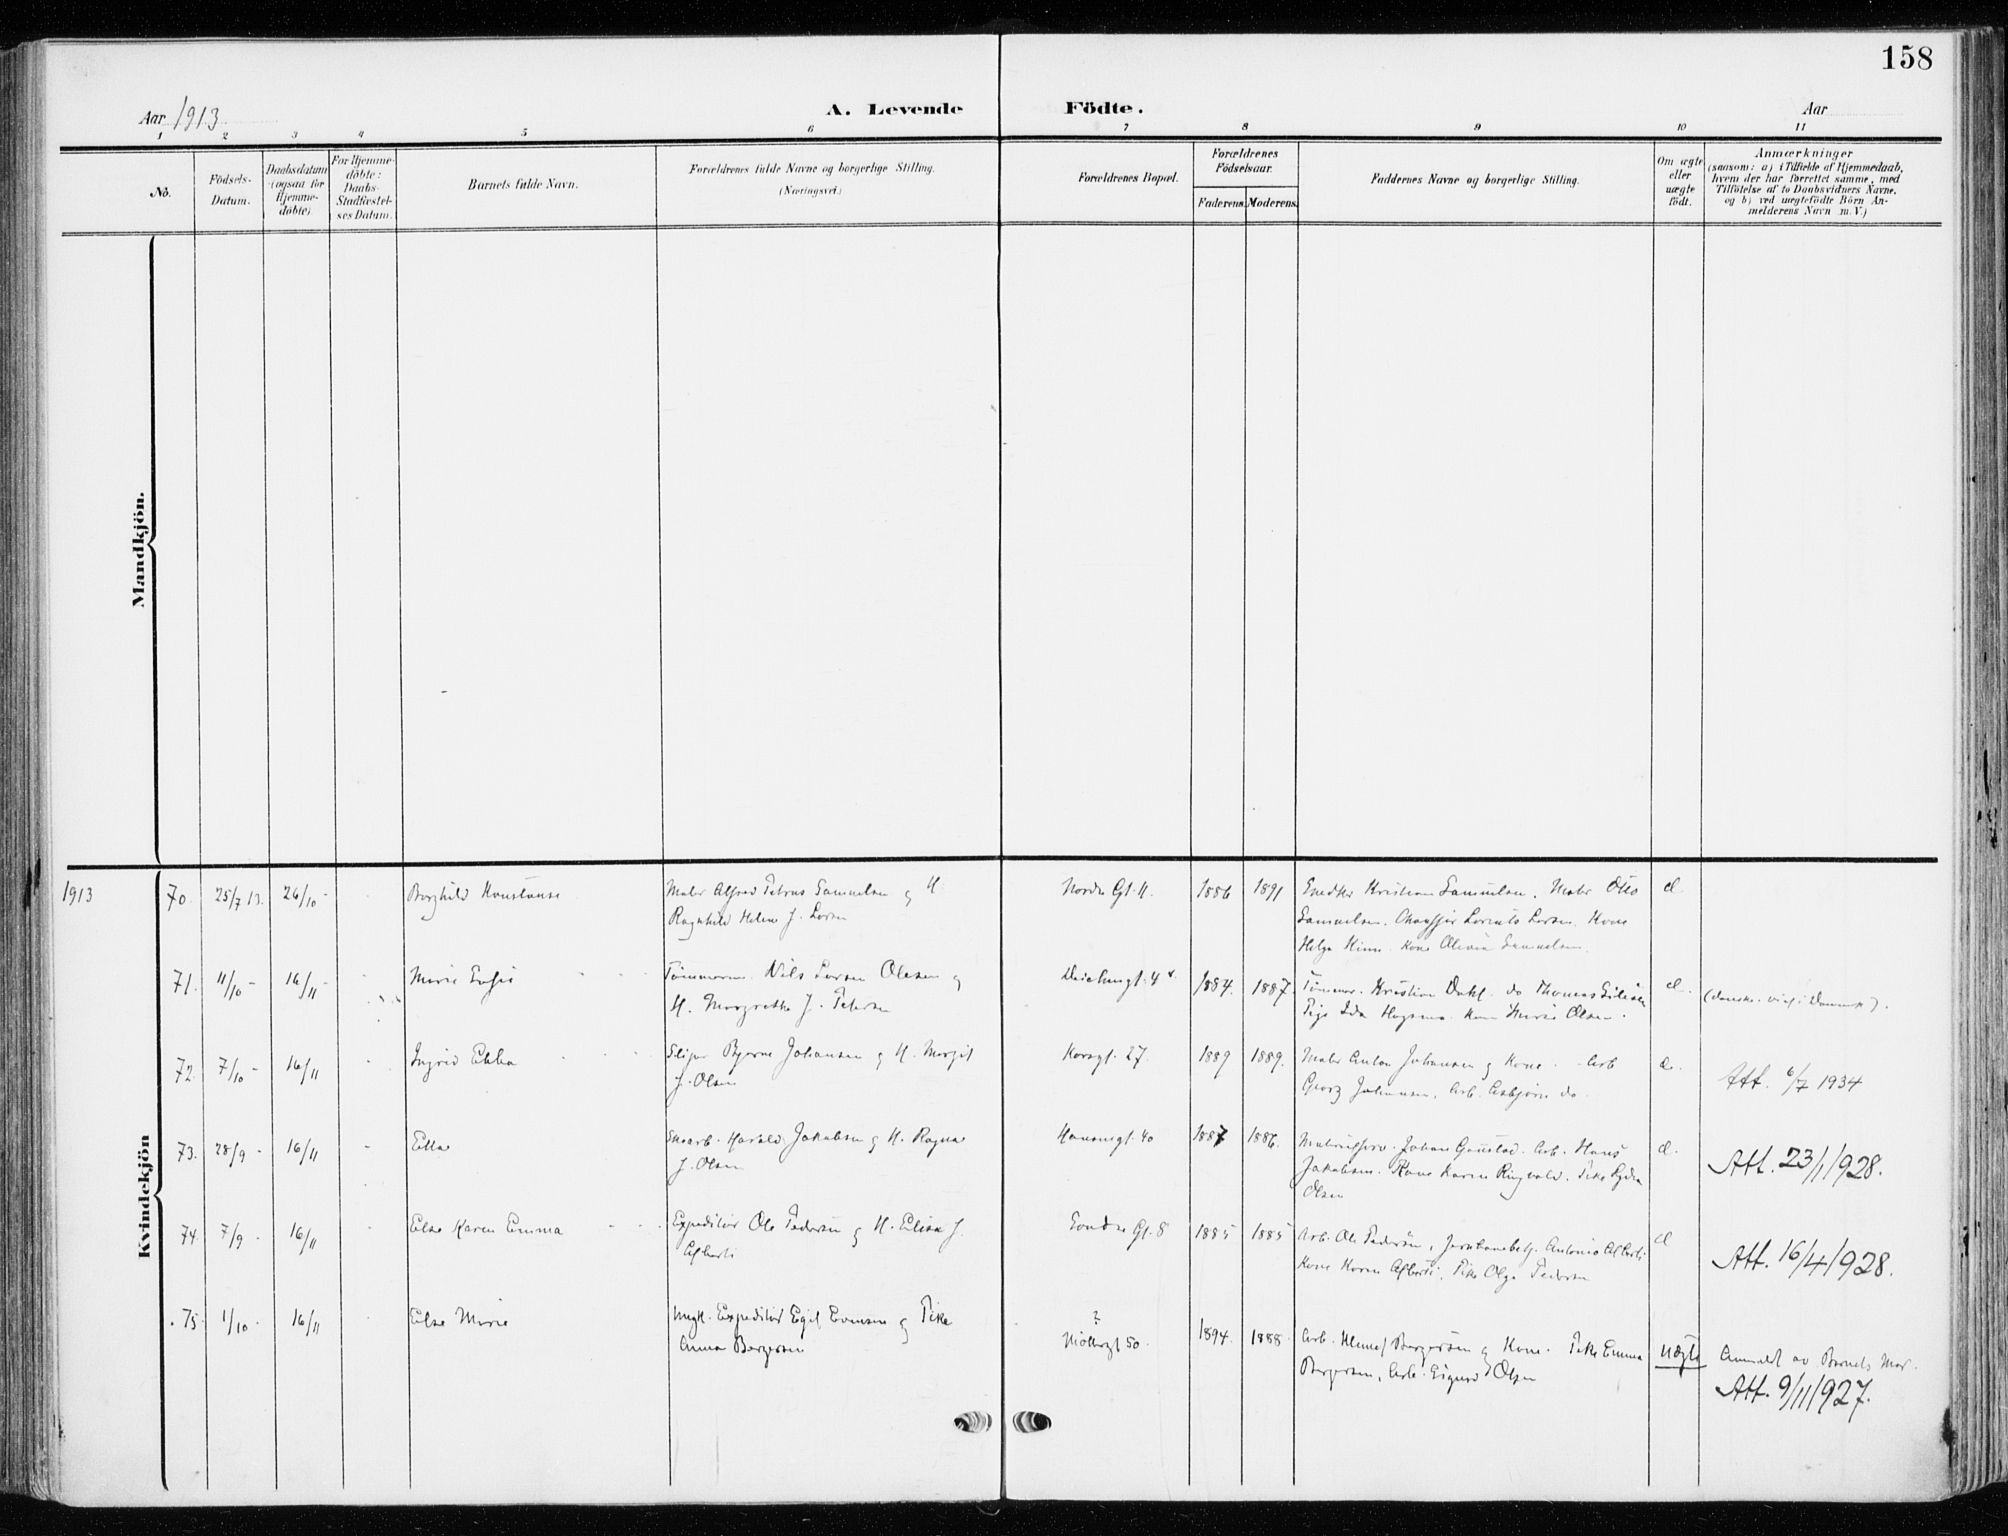 158
Aar 1913
A. Levende Födte.
Aar
1 2 3 4 5 6 7 8 9 10 11
No.
Födsels-
Datum.
Daabsdatum
(ogsaa for
Hjemme-
döbte)
For Hjemme-
döbte:
Daabs-
Stadfæstel-
ses Datum.
Barnets fulde Navn.
Forældrenes fulde Navne og borgerlige Stilling.
(Næringsvei.)
Forældrenes Bopæl.
Forældrenes
Födselsaar.
Faderens. Moderens.
Faddernes Navne og borgerlige Stilling.
Om ægte
eller
uægte
födt.
Anmærkninger
(saasom: a) i Tilfælde af Hjemmedaab,
hvem der har forrettet samme, med
Tilföielse af to Daabsvidners Navne,
og b) ved uægtefödte Börn An-
melderens Navn m. V.)
Mandkjön.
Kvindekjön
1913
70. 25/7 13. 26/10 - Borghild Konstanse
Maler Alfred Petrus Samuelsen og H.
Ragnhild Helene f. Larsen
Nordre Gt. 11. 1886 1891
Kristian Samuelsen. Maler Otto
Samuelsen. Larsen. Kone
Helga Kone Olivia Samuelsen.
71. 11/10 - 16/11 - Marie
Tömmerm. Nils Larsen Olesen og
H. Margrethe f. Petersen
1884. 1887.
Tömmer. Kristian Dahl. do Thomas
Pige Ida Marie Olsen.
72. 7/10 - 16/11 Ingrid Ebba
Sliper Bjarne Johansen og H. Margit
f. Olsen
Korsgt. 27. 1889 1889.
Maler Anton Johansen og Kone. Arb
Georg Johansen, Arb. Asbjørn do.
Att. 6/7 1934
73. 28/9 - 16/11 - Ella
Skoarb. Harald Jakobsen og H. Ragna
f. Olsen
Hansengt. 40 1887 1886.
Johan Gaustad. Arb. Hans
Jakobsen. Kone Karen Ringvold. Pike Lydia
Olsen
Att. 23/1 1928.
74. 7/9 - 16/11 Else Karen Emma
Expeditör Ole Pedersen og H. Elisa f.
Alberti
Söndre Gt. 8 1885 1885
Arb. Ole Pedersen, Jernbanebetj. Antonio Alberti
Kone Karen Alberti, Pike Olga Pedersen
Att. 16/4 1928.
75. 1/10 - 16/11 Else Marie
Ungk. Expeditör Egil Evensen og Pike
Anna Bergersen
?
Möllergt 50. 1894. 1888
Arb. Bergersen og Kone. Pike Emma
Bergersen, Arb. Sigurd Olsen
Uægte
Anmeldt av Barnets Mor.
Att. 9/11 1927.